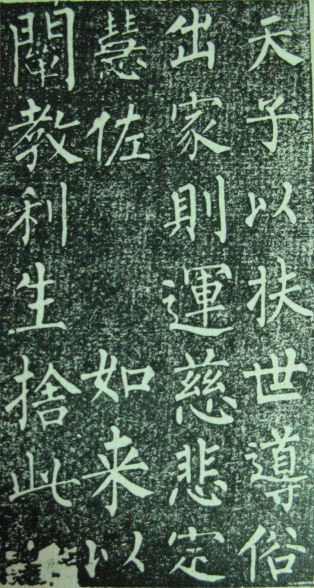 天子以扶世導俗
出家則運慈悲定
慧佐如来以
闡教利生捨此